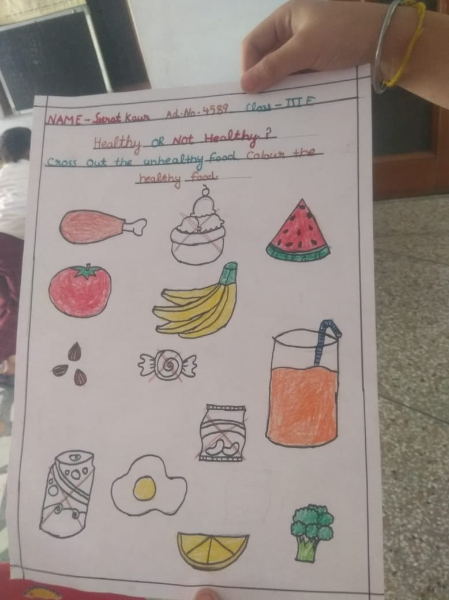 NAME - Seerat Kaur Ad.No.-4589 Class - III E
Healthy or Not Healthy?
Cross Out the unhealthy food Colour the
healthy food